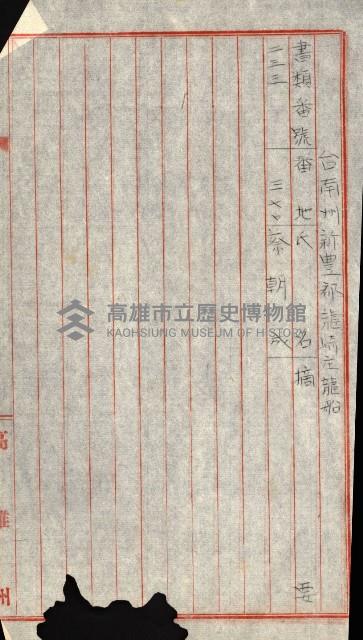 台南州新豊郡龍崎庄龍船
書類番號 番地 氏名 摘要
二三三 三七〇 蔡朝成
高雄州
高雄市立歷史博物館
KAOHSIUNG MUSEUM OF HISTORY